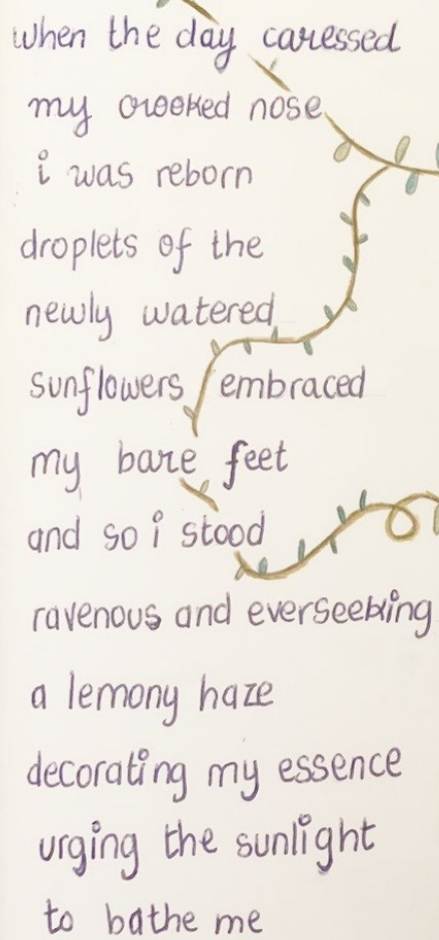 when the day caressed
my crooked nose
i was reborn
droplets of the
newly watered
sunflowers embraced
my bare feet
and so i stood
ravenous and everseeking
a lemony haze
decorating my essence
urging the sunlight
to bathe me